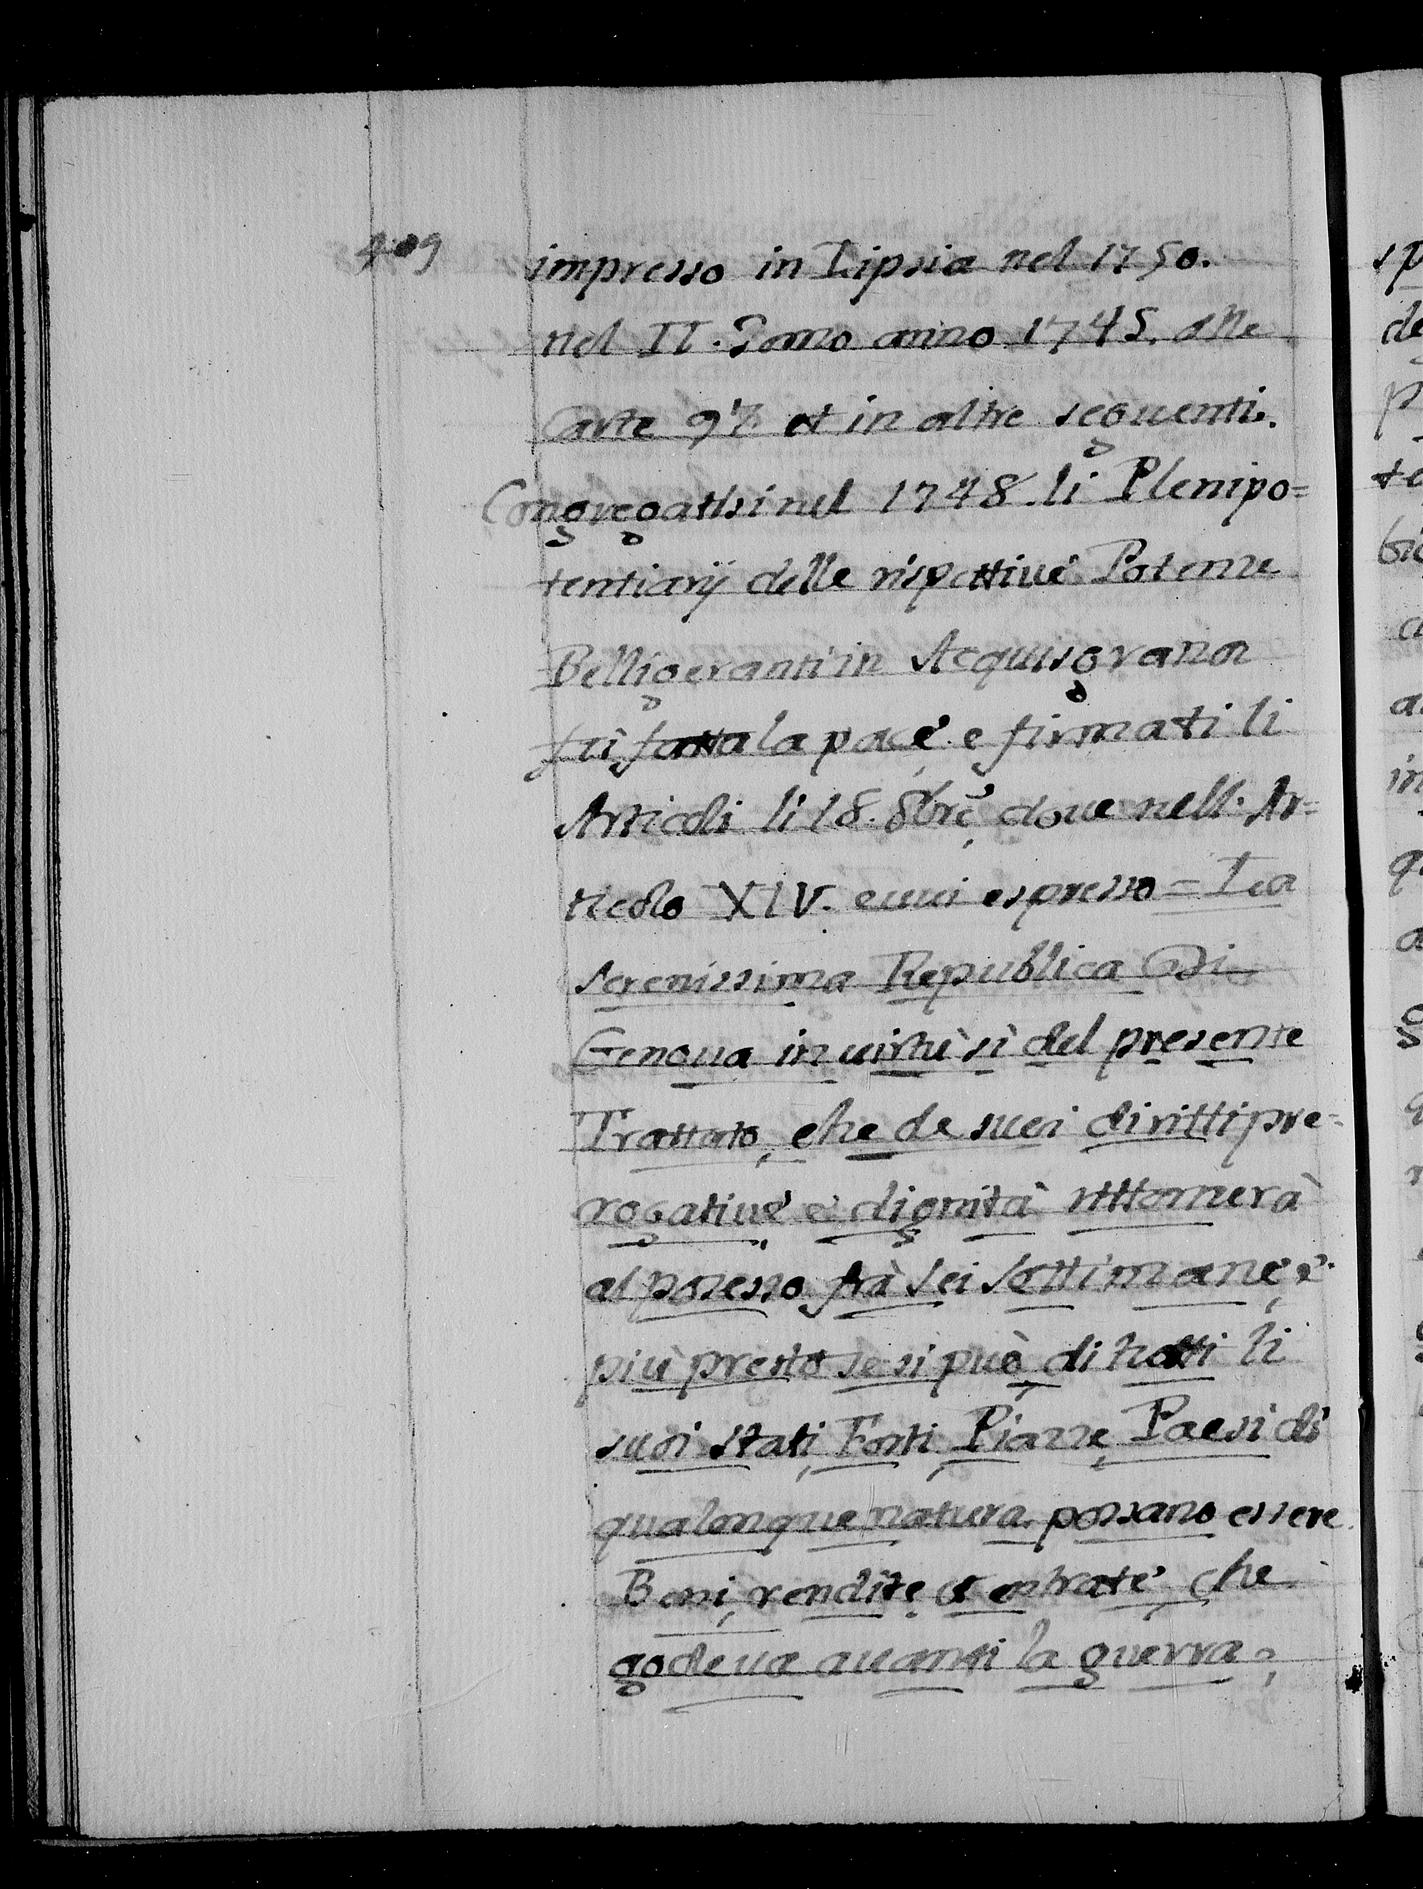 409
impresso in Lipsia nel 1750.
nel II. Tomo anno 1745. alle
Carte 97 et in altre seguenti.
Congregatisi nel 1748. li Plenipo=
tentiarij delle rispettiue Potenze
Belligeranti in Acquisgrana
fù fatta la pace, e firmati li
Articoli li 18. 8bre, doue nell. Ar=
ticolo XIV. euui espresso = La
Serenissima Republica Di
Genoua in uirtù sì del presente
Trattato, che de suoi diritti pre=
rogatiue e dignità rittornerà
al possesso frà sei settimane, e
più presto se si può, di tutti li
suoi stati, Forti, Piazze, Paesi di
qualonque natura possano essere
Beni, rendite et entrate, che
godeua auanti la guerra;